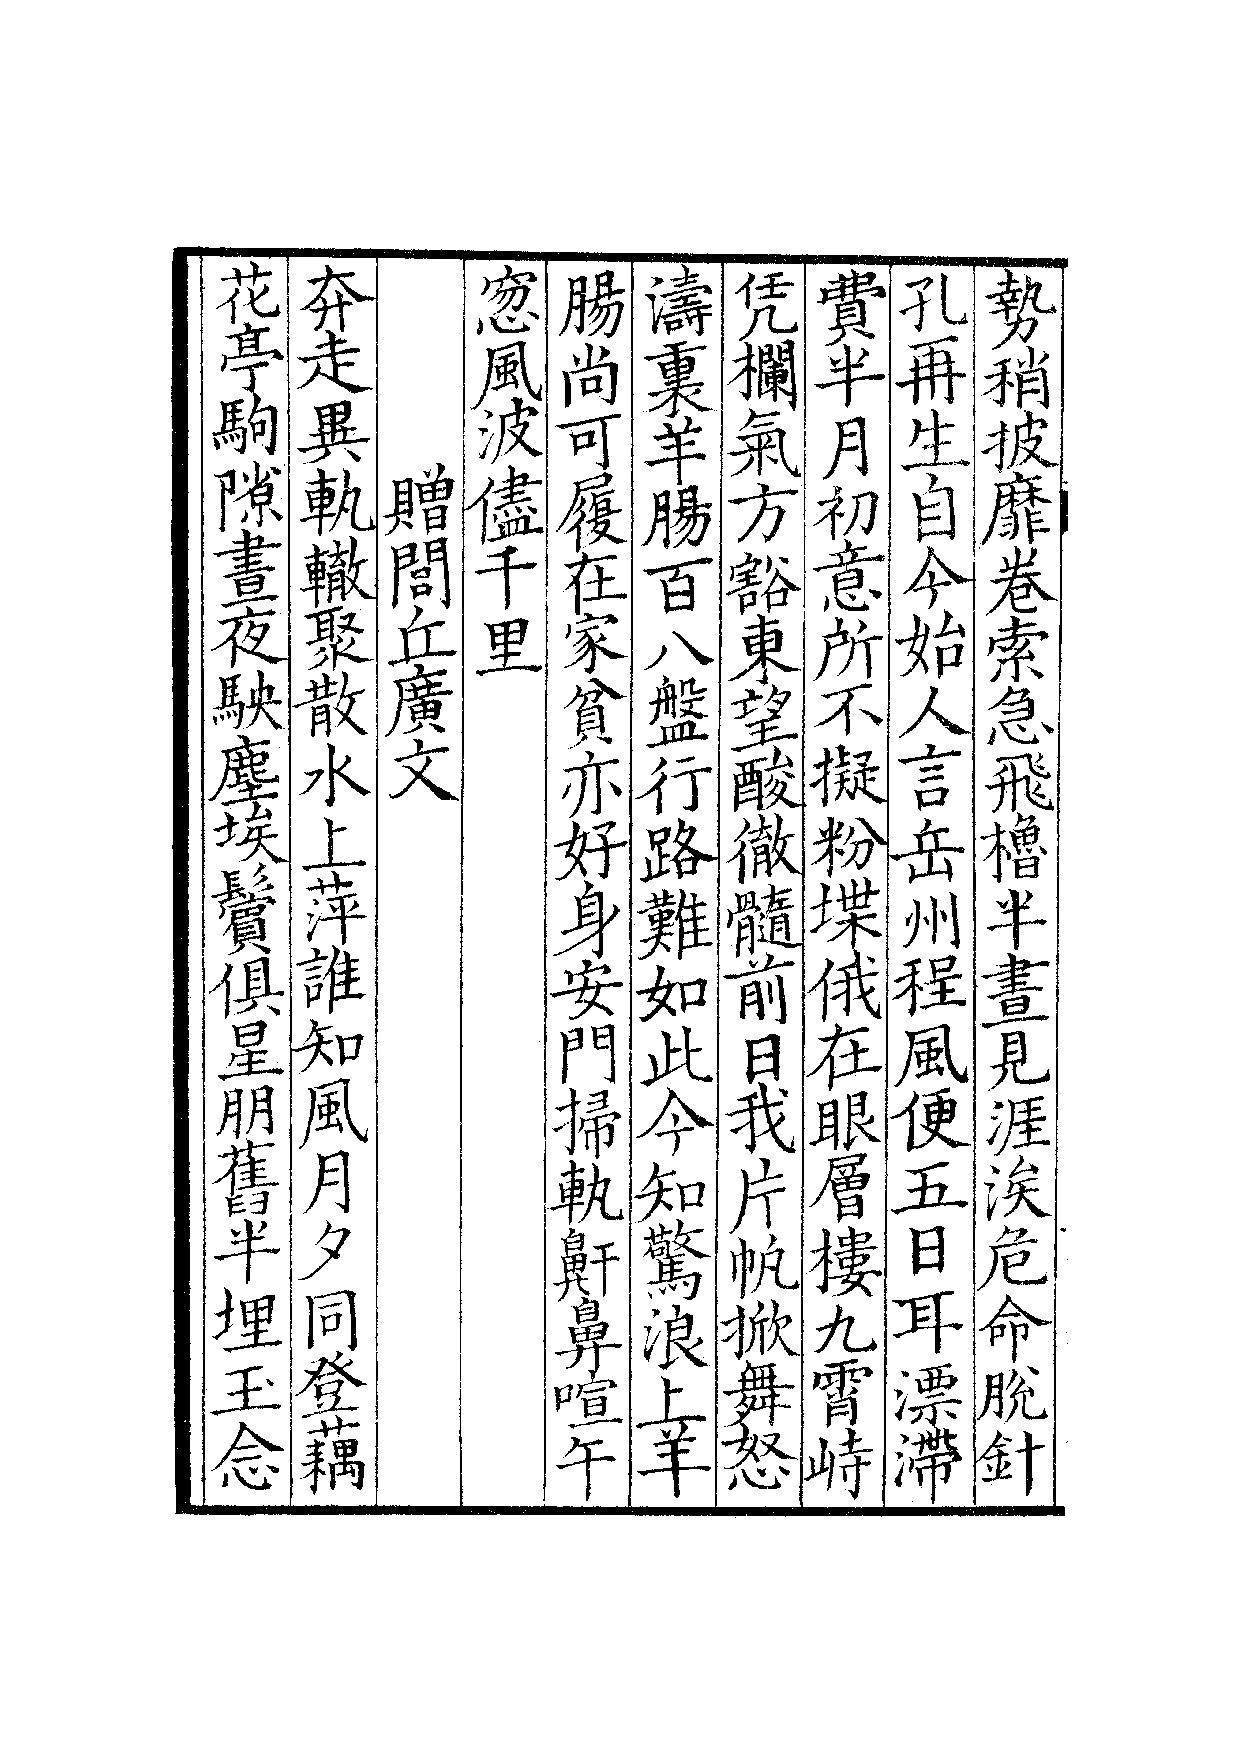 勢稍披靡卷索急飛櫓半晝見涯涘危命脫針
孔再生自今始人言岳州程風便五日耳漂滯
費半月初意所不擬粉堞俄在眼層樓九霄峙
凭欄氣方豁東望酸徹髓前日我片帆掀舞怒
濤裏羊腸百八盤行路難如此今知驚浪上羊
腸尚可履在家貧亦好身安門掃軌鼾鼻喧午
窓風波儘千里
贈閭丘廣文
奔走異軌轍聚散水上萍誰知風月夕同登藕
花亭駒隙晝夜駛塵埃鬢俱星朋舊半埋玉念